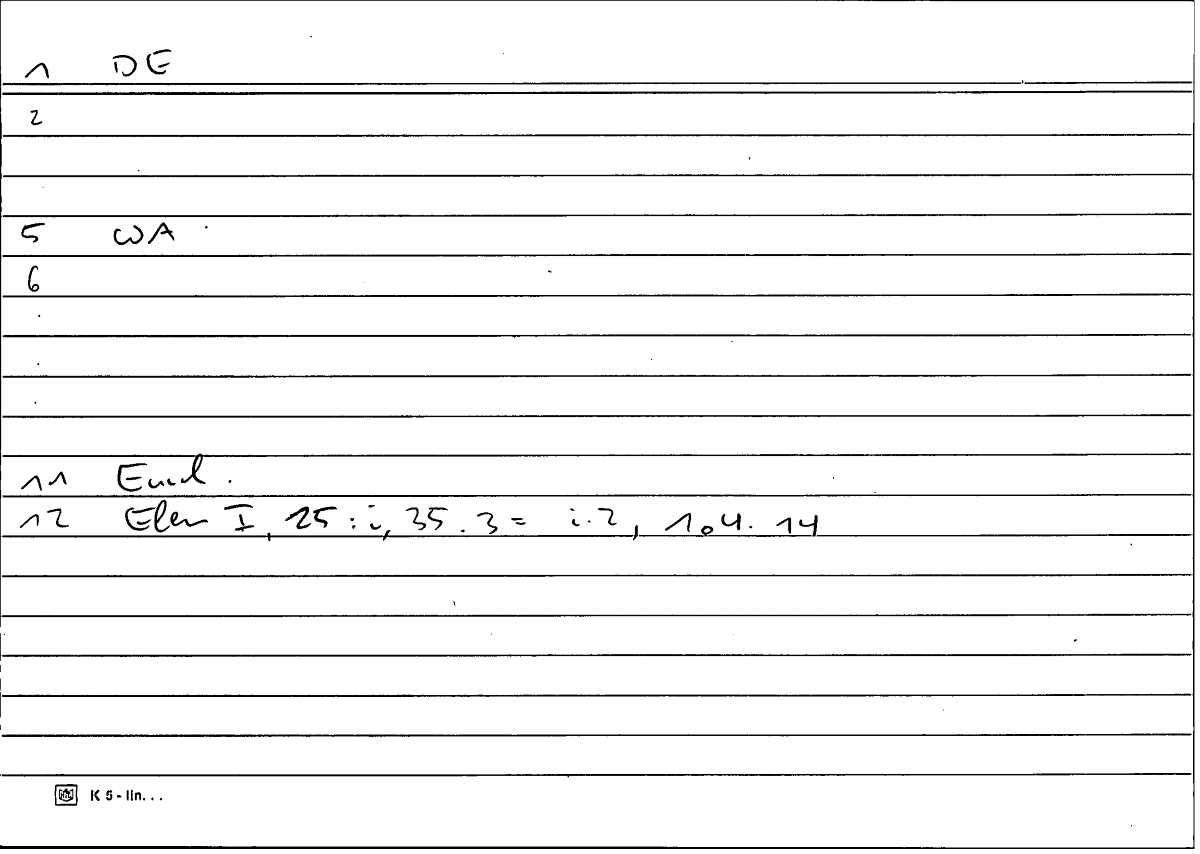 1 DE
2
5 WA
6
.
.
.
11 Eucl.
12 Elem I, 25:i, 35.3 = i.2, 1.4.14
K 5 - lin. . .